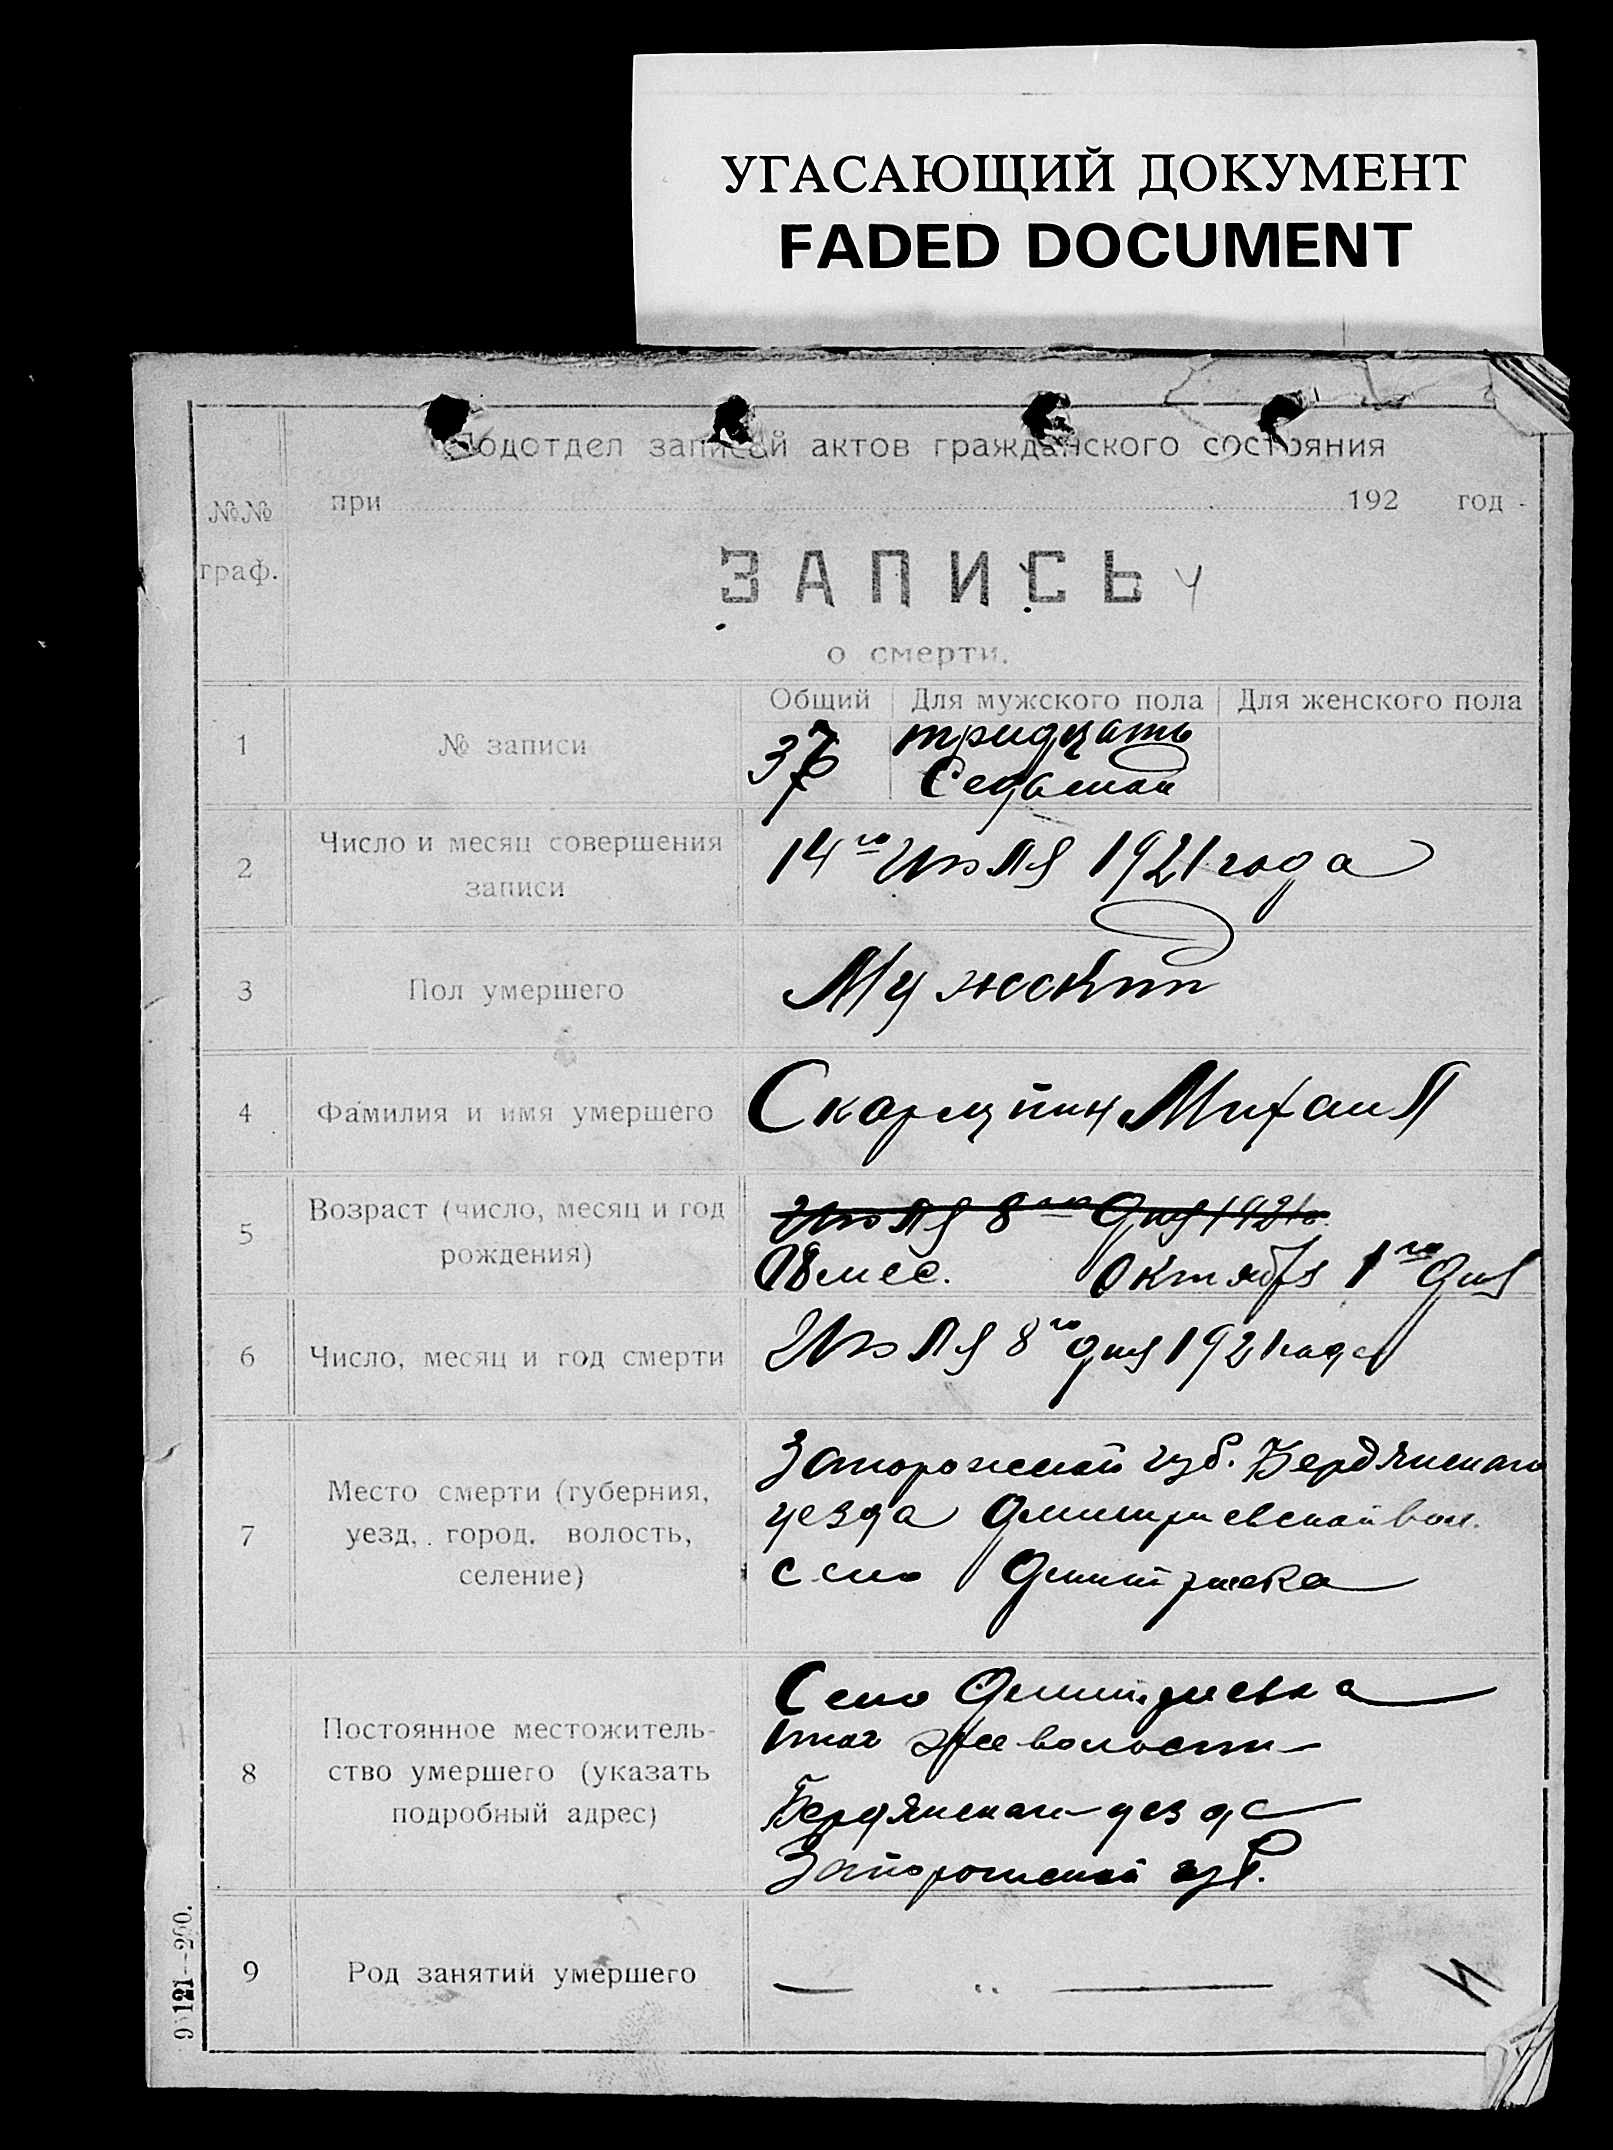 УГАСАЮЩИЙ ДОКУМЕНТ
FADED DOCUMENT
Подотдел записей актов гражданского состояния
№№ граф.
при 192 год
ЗАПИСЬ
о смерти.
Общий Для мужского пола Для женского пола
1 № записи
37 тридцать
Седьмой
2 Число и месяц совершения записи
14го Июля 1921 года
3 Пол умершего
Мужской
4 Фамилия и имя умершего
Михаил
5 Возраст (число, месяц и год рождения)
Июля 8го Дня 1921г.
8 мес. Октября 1го Дня
6 Число, месяц и год смерти
Июля 8го дня 1921 года
7 Место смерти (губерния, уезд, город, волость, селение)
Запорожской губ. Бердянскаго
уезда Дмитриевской вол.
село Дмитриевка
8 Постоянное местожитель-
ство умершего (указать
подробный адрес)
Село Дмитриевка
той же волости
Бердянскаго уезда
Запорожской губ.
9 Род занятий умершего
— „ —